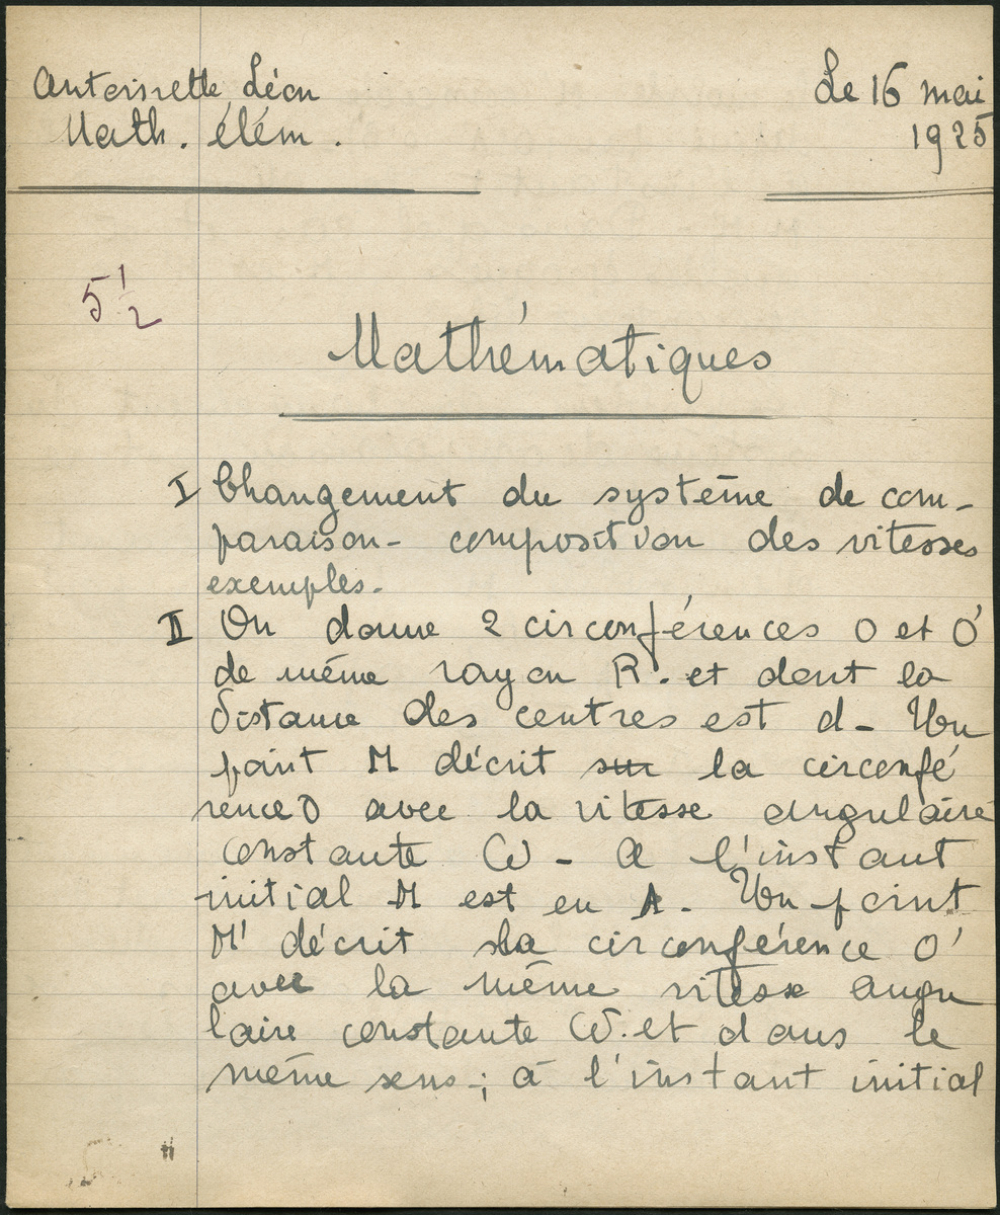 Antoinette Léon
Le 16 mai
Math. élém.
1925
5 1/2
Mathématiques
I Changement du système de com-
paraison - composition des vitesses
exemples.
II On donne 2 circonférences O et O'
de même rayon R. et dont la
distance des centres est d - Un
point M décrit sur la circonfé
rence O avec la vitesse angulaire
constante ω - A l'instant
initial M est en A. Un point
M' décrit la circonférence O'
avec la même vitesse angu
laire constante ω. et dans le
même sens ; à l'instant initial